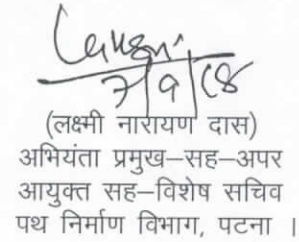 7/9/18
(लक्ष्मी नारायण दास)
अभियंता प्रमुख–सह–अपर
आयुक्त सह–विशेष सचिव
पथ निर्माण विभाग, पटना ।